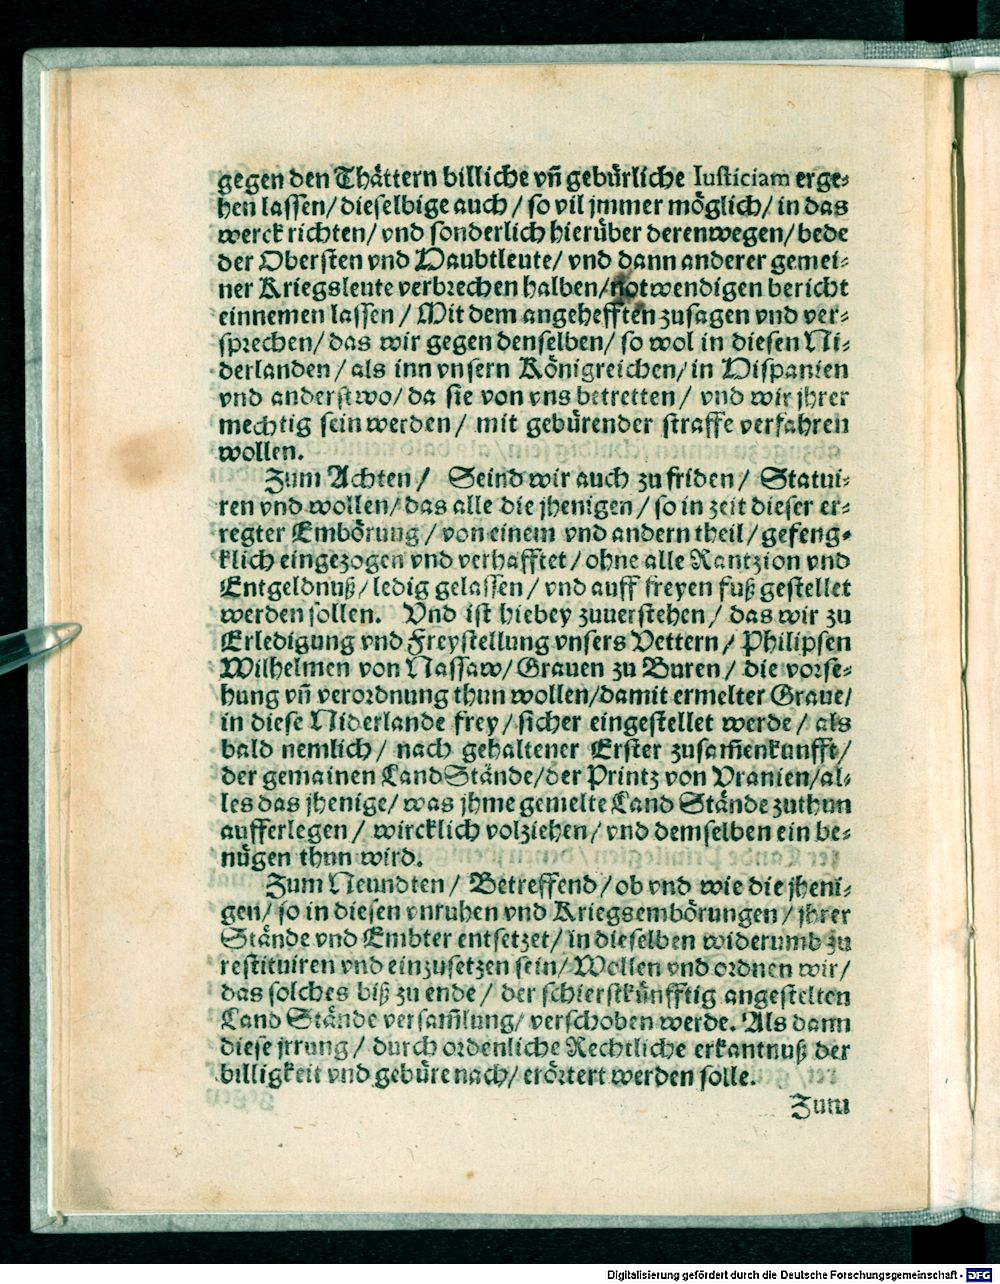 gegen den Thättern billiche vñ gebürliche Iusticiam erge⸗
hen lassen/ dieselbige auch / so vil jmmer möglich/ in das
werck richten/ vnd sonderlich hierüber derenwegen/ bede
der Obersten vnd Haubtleute/ vnd dann anderer gemei⸗
ner Kriegsleute verbrechen halben/ notwendigen bericht
einnemen lassen / Mit dem angehefften zusagen vnd ver⸗
sprechen/ das wir gegen denselben/ so wol in diesen Ni⸗
derlanden / als inn vnsern Königreichen/ in Hispanien
vnd anderstwo/ da sie von vns betretten / vnd wir jhrer
mechtig sein werden / mit gebürender straffe verfahren
wollen.
Zum Achten / Seind wir auch zu friden / Statui⸗
ren vnd wollen/ das alle die jhenigen / so in zeit dieser er⸗
regter Embörung / von einem vnd andern theil / gefeng⸗
klich eingezogen vnd verhafftet / ohne alle Rantzion vnd
Entgeldnuß / ledig gelassen / vnd auff freyen fuß gestellet
werden sollen. Vnd ist hiebey zuuerstehen / das wir zu
Erledigung vnd Freystellung vnsers Vettern / Philipsen
Wilhelmen von Nassaw/ Grauen zu Buren / die vorse⸗
hung vñ verordnung thun wollen/ damit ermelter Graue/
in diese Niderlande frey / sicher eingestellet werde / als
bald nemlich / nach gehaltener Erster zusam̃enkunfft/
der gemainen LandStände/ der Printz von Vranien/ al⸗
les das jhenige/ was jhme gemelte Land Stände zuthun
aufferlegen / wircklich volziehen/ vnd demselben ein be⸗
nügen thun wird.
Zum Neundten / Betreffend/ ob vnd wie die jheni⸗
gen/ so in diesen vnruhen vnd Kriegsembörungen / jhrer
Stände vnd Embter entsetzet/ in dieselben widerumb zu
restituiren vnd einzusetzen sein/ Wollen vnd ordnen wir/
das solches biß zu ende / der schierstkünfftig angestelten
Land Stände versam̃lung/ verschoben werde. Als dann
diese jrrung / durch ordenliche Rechtliche erkantnuß der
billigkeit vnd gebüre nach/ erörtert werden solle.
Zum
Digitalisierung gefördert durch die Deutsche Forschungsgemeinschaft - DFG